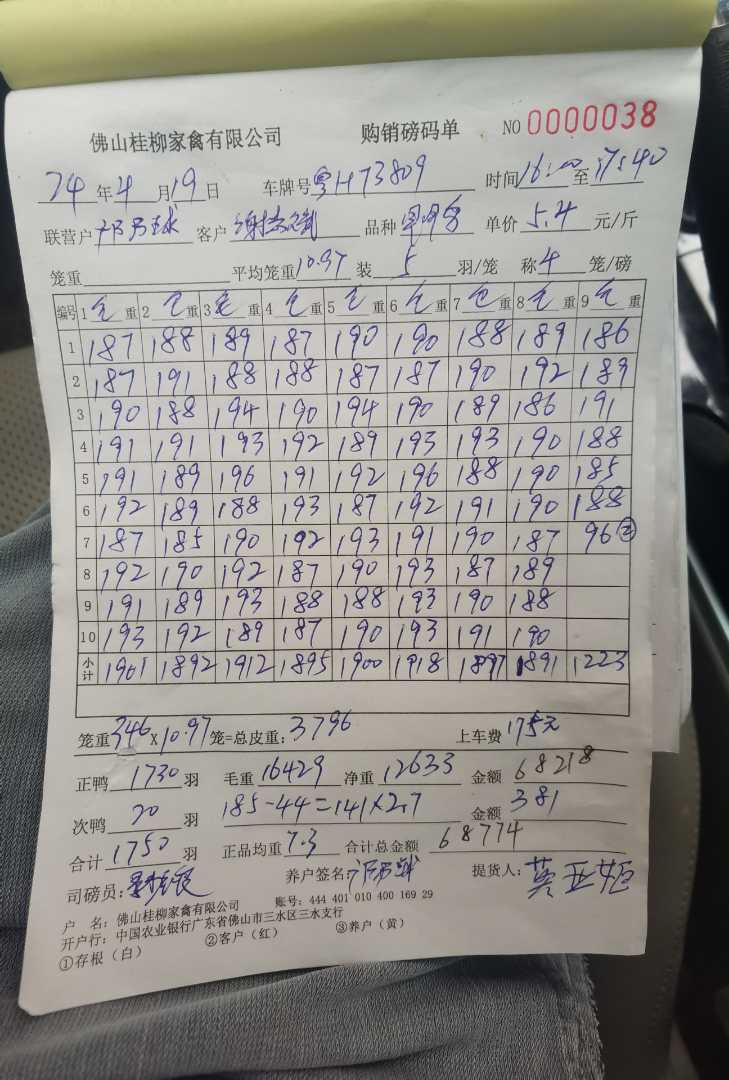 佛山桂柳家禽有限公司 购销磅码单 NO 0000038
24年4月19日 车牌号粤H73809 时间16:00至17:40
联营户 客户 品种 单价5.4元/斤
笼重 平均笼重10.97 装5羽/笼 称4笼/磅
编号 1毛重 2毛重 3毛重 4毛重 5毛重 6毛重 7毛重 8毛重 9毛重
1 187 188 189 187 190 190 188 189 186
2 187 191 188 188 187 187 190 192 189
3 190 188 194 190 194 190 189 186 191
4 191 191 193 192 189 193 193 190 188
5 191 189 196 191 192 196 188 190 185
6 192 189 188 193 187 192 191 190 188
7 187 185 190 192 193 191 190 187 96②
8 192 190 192 187 190 193 187 189
9 191 189 193 188 188 193 190 188
10 193 192 189 187 190 193 191 190
小计 1901 1892 1912 1895 1900 1918 1897 1891 1223
笼重346×10.97笼=总皮重:3796 上车费175元
正鸭1730羽 毛重16429 净重12633 金额68218
次鸭20羽 185-44=141×2.7 金额381
合计1750羽 正品均重7.3 合计总金额68774
司磅员: 养户签名 提货人:
户 名:佛山桂柳家禽有限公司 账号:444 401 010 400 169 29
开户行:中国农业银行广东省佛山市三水区三水支行
①存根(白) ②客户(红) ③养户(黄)